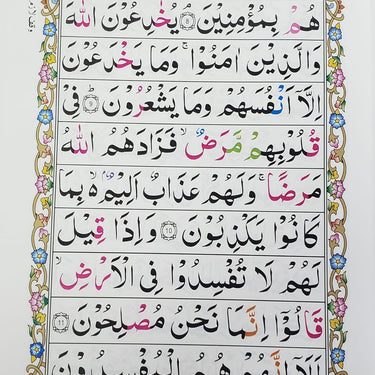 هُمْ بِمُؤْمِنِيْنَ ۝۸ يُخٰدِعُوْنَ اللّٰهَ
وَالَّذِيْنَ اٰمَنُوْا ۚ وَمَا يَخْدَعُوْنَ
اِلَّاۤ اَنْفُسَهُمْ وَمَا يَشْعُرُوْنَ ۝۹ فِيْ
قُلُوْبِهِمْ مَّرَضٌ ۙ فَزَادَهُمُ اللّٰهُ
مَرَضًا ۚ وَلَهُمْ عَذَابٌ اَلِيْمٌۢ ۙ بِمَا
كَانُوْا يَكْذِبُوْنَ ۝۱۰ وَاِذَا قِيْلَ
لَهُمْ لَا تُفْسِدُوْا فِي الْاَرْضِ ۙ
قَالُوْۤا اِنَّمَا نَحْنُ مُصْلِحُوْنَ ۝۱۱
اَلَاۤ اِنَّهُمْ هُمُ الْمُفْسِدُوْنَ